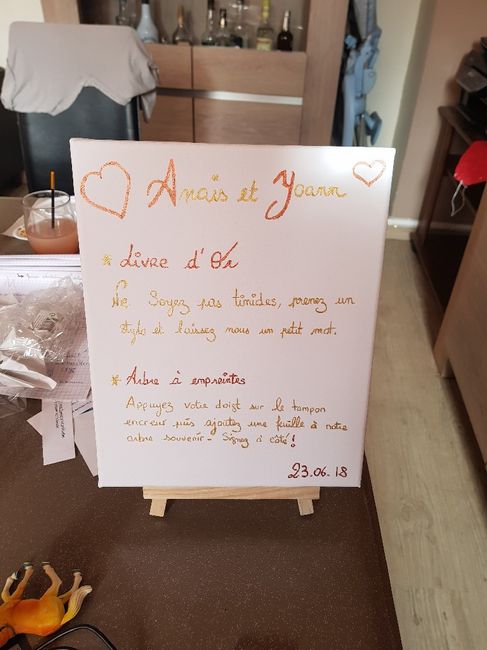 Anaïs et Yoann
* Livre d'Or
Ne Soyez pas timides, prenez un
stylo et laissez nous un petit mot.
* Arbre à empreintes
Appuyez votre doigt sur le tampon
encreur puis ajoutez une feuille à notre
arbre souvenir. Signez à côté!
23.06.18